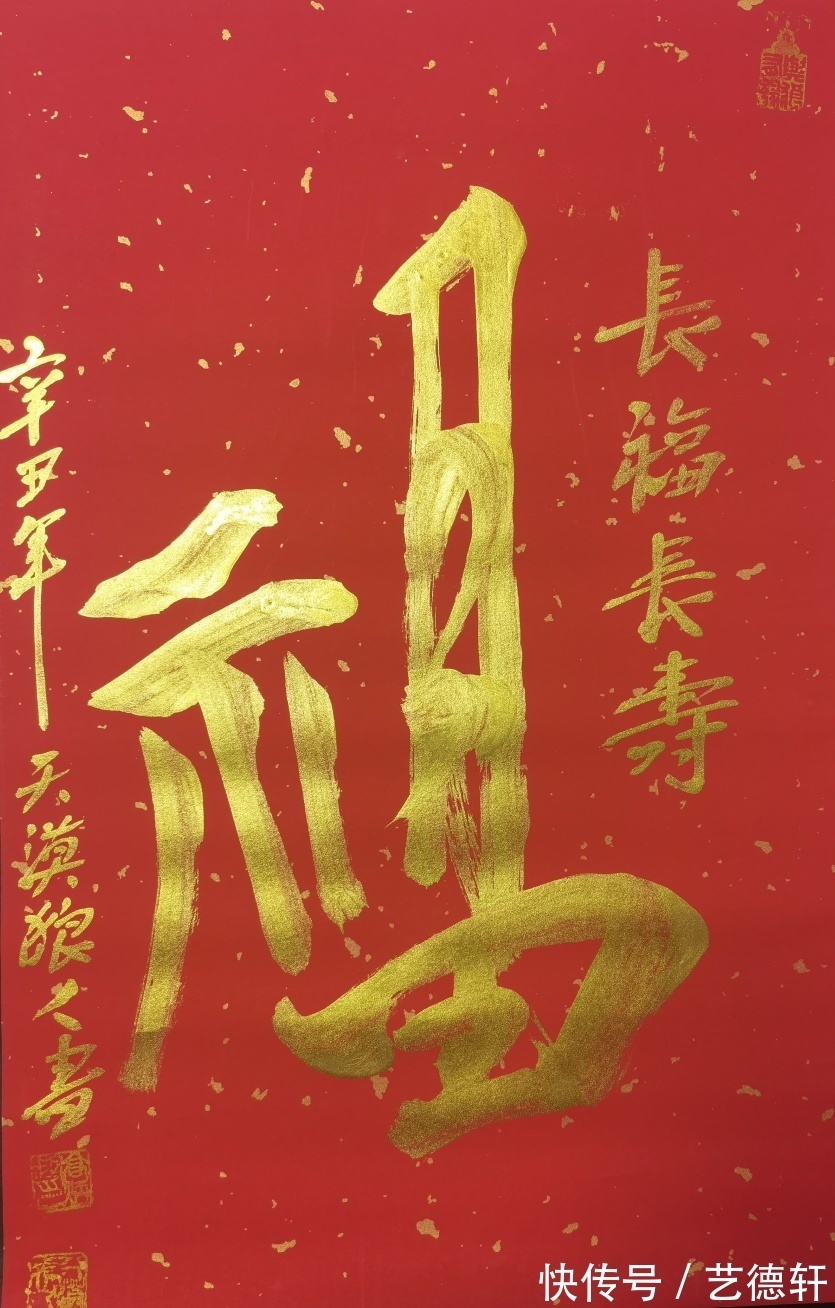 長福長壽
福
辛丑年 天漠狼人書
快传号 / 艺德轩